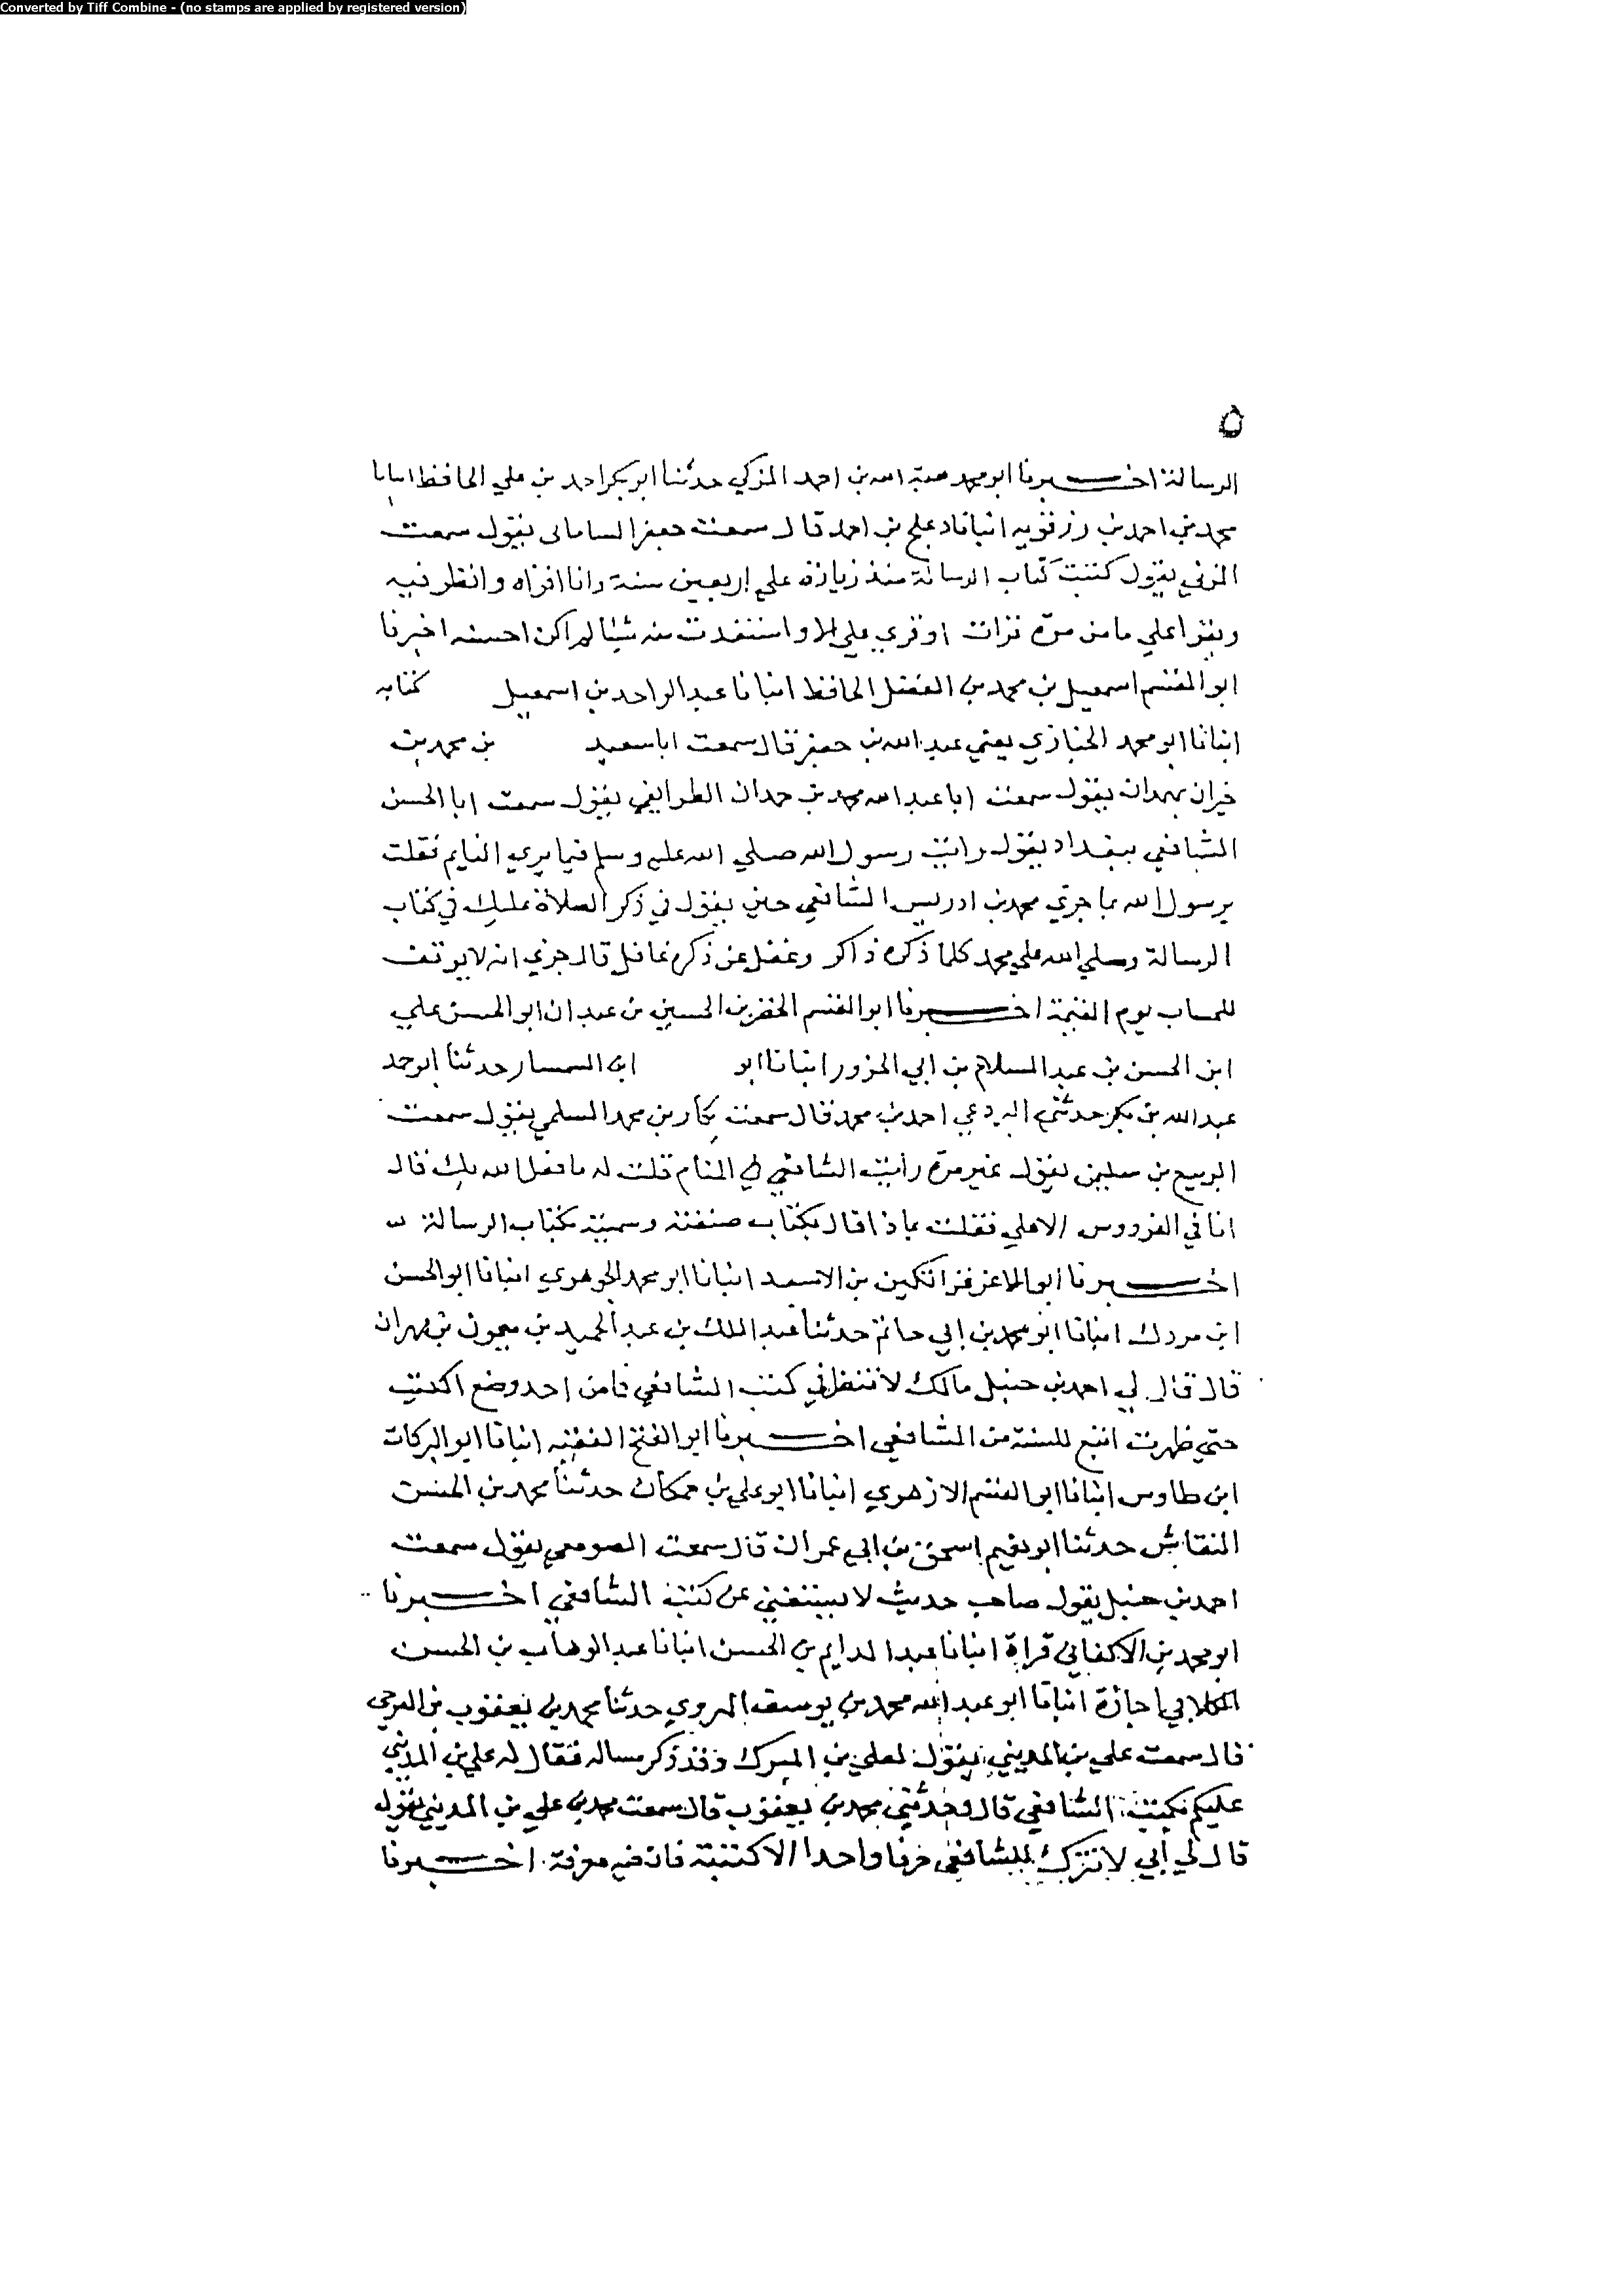 Converted by Tiff Combine - (no stamps are applied by registered version)
٥
الرسالة اخبرنا ابو محمد هبة الله بن احمد المزكي حدثنا ابو بكر احمد بن علي الحافظ انبانا
محمد بن احمد بن رزقويه انبانا دعلج بن احمد قال سمعت جعفر الساماني يقول سمعت
المزني يقول كتبت كتاب الرسالة منذ زيادة على اربعين سنة وانا اقراه وانظر فيه
ويقرا علي ما من مرة قرات او قري علي الا واستفدت منه شيا لم اكن احسنه اخبرنا
ابو القسم اسمعيل بن محمد بن الفضل الحافظ انبانا عبد الواحد بن اسمعيل كتابه
انبانا ابو محمد الخبازي يعني عبد الله بن جعفر قال سمعت ابا سعيد بن محمد بن
خيران بهمدان يقول سمعت ابا عبد الله محمد بن حمدان الطرايفي يقول سمعت ابا الحسن
الشافعي ببغداد يقول رايت رسول الله صلي الله عليه وسلم فيما يري النايم فقلت
يرسول الله بما جزي محمد بن ادريس الشافعي حين يقول في ذكر الصلاة عليك في كتاب
الرسالة وصلي الله علي محمد كلما ذكره ذاكر وغفل عن ذكره غافل قال جزي انه لا يوقف
للحساب يوم القيمة اخبرنا ابو القسم الخضر بن الحسين بن عبدان ابو الحسن علي
ابن الحسن بن عبد السلام بن ابي الحزور انبانا ابو ابن السمسار حدثنا ابو احمد
عبد الله بن بكر حدثني البردعي احمد بن محمد قال سمعت بكار بن محمد السلمي يقول سمعت
الربيع بن سليمن يقول غير مرة رايت الشافعي في المنام قلت له ما فعل الله بك قال
انا في الفردوس الاعلي فقلت بماذا قال بكتاب صنفته وسميته بكتاب الرسالة
اخبرنا ابو الاعز قراتكين بن الاسعد انبانا ابو محمد الجوهري انبانا ابو الحسن
ابن مردك انبانا ابو محمد بن ابي حاتم حدثنا عبد الملك بن عبد الحميد بن ميمون بن مهران
قال قال لي احمد بن حنبل مالك لا تنظر في كتب الشافعي فما من احد وضع الكتب
حتي ظهرت اتبع للسنة من الشافعي اخبرنا ابو الفتح الفقيه انبانا ابو البركات
ابن طاوس انبانا ابو القسم الازهري انبانا ابو علي بن حمكان حدثنا محمد بن الحسن
النقاش حدثنا ابو نعيم اسحق بن ابي عمران قال سمعت الصومعي يقول سمعت
احمد بن حنبل يقول صاحب حديث لا يستغني عن كتب الشافعي اخبرنا
ابو محمد بن الاكفاني قراة انبانا عبد الدايم بن الحسن انبانا عبد الوهاب بن الحسن
الكلابي اجازة انبانا ابو عبد الله محمد بن يوسف الهروي حدثنا محمد بن يعقوب بن الفرجي
قال سمعت علي بن المديني يقول لعلي بن المبرك وقد ذكر مساله فقال له علي بن المديني
عليكم بكتب الشافعي قال وحدثني محمد بن يعقوب قال سمعت محمد بن علي بن المديني يقول
قال لي ابي لا تترك للشافعي حرفا واحدا الا كتبته فان فيه معرفة اخبرنا